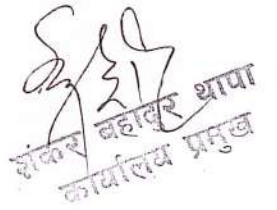 शंकर बहादुर थापा
कार्यालय प्रमुख